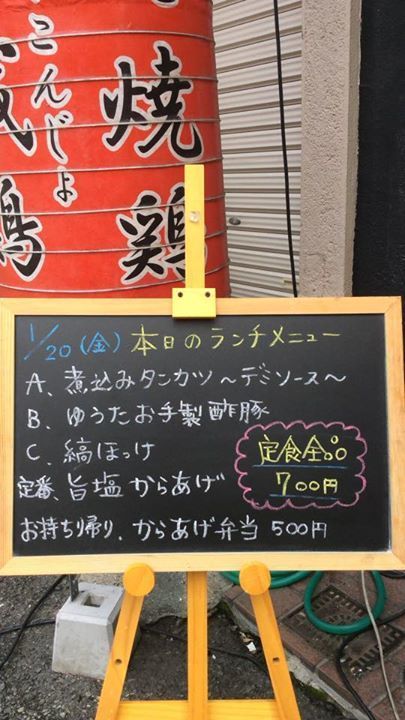 こんじょ
焼
鶏
鶏
1/20(金) 本日のランチメニュー
A、煮込みタンカツ～デミソース～
B、ゆうたお手製酢豚
C、縞ほっけ
定番、旨塩からあげ
定食全品
700円
お持ち帰り、からあげ弁当 500円